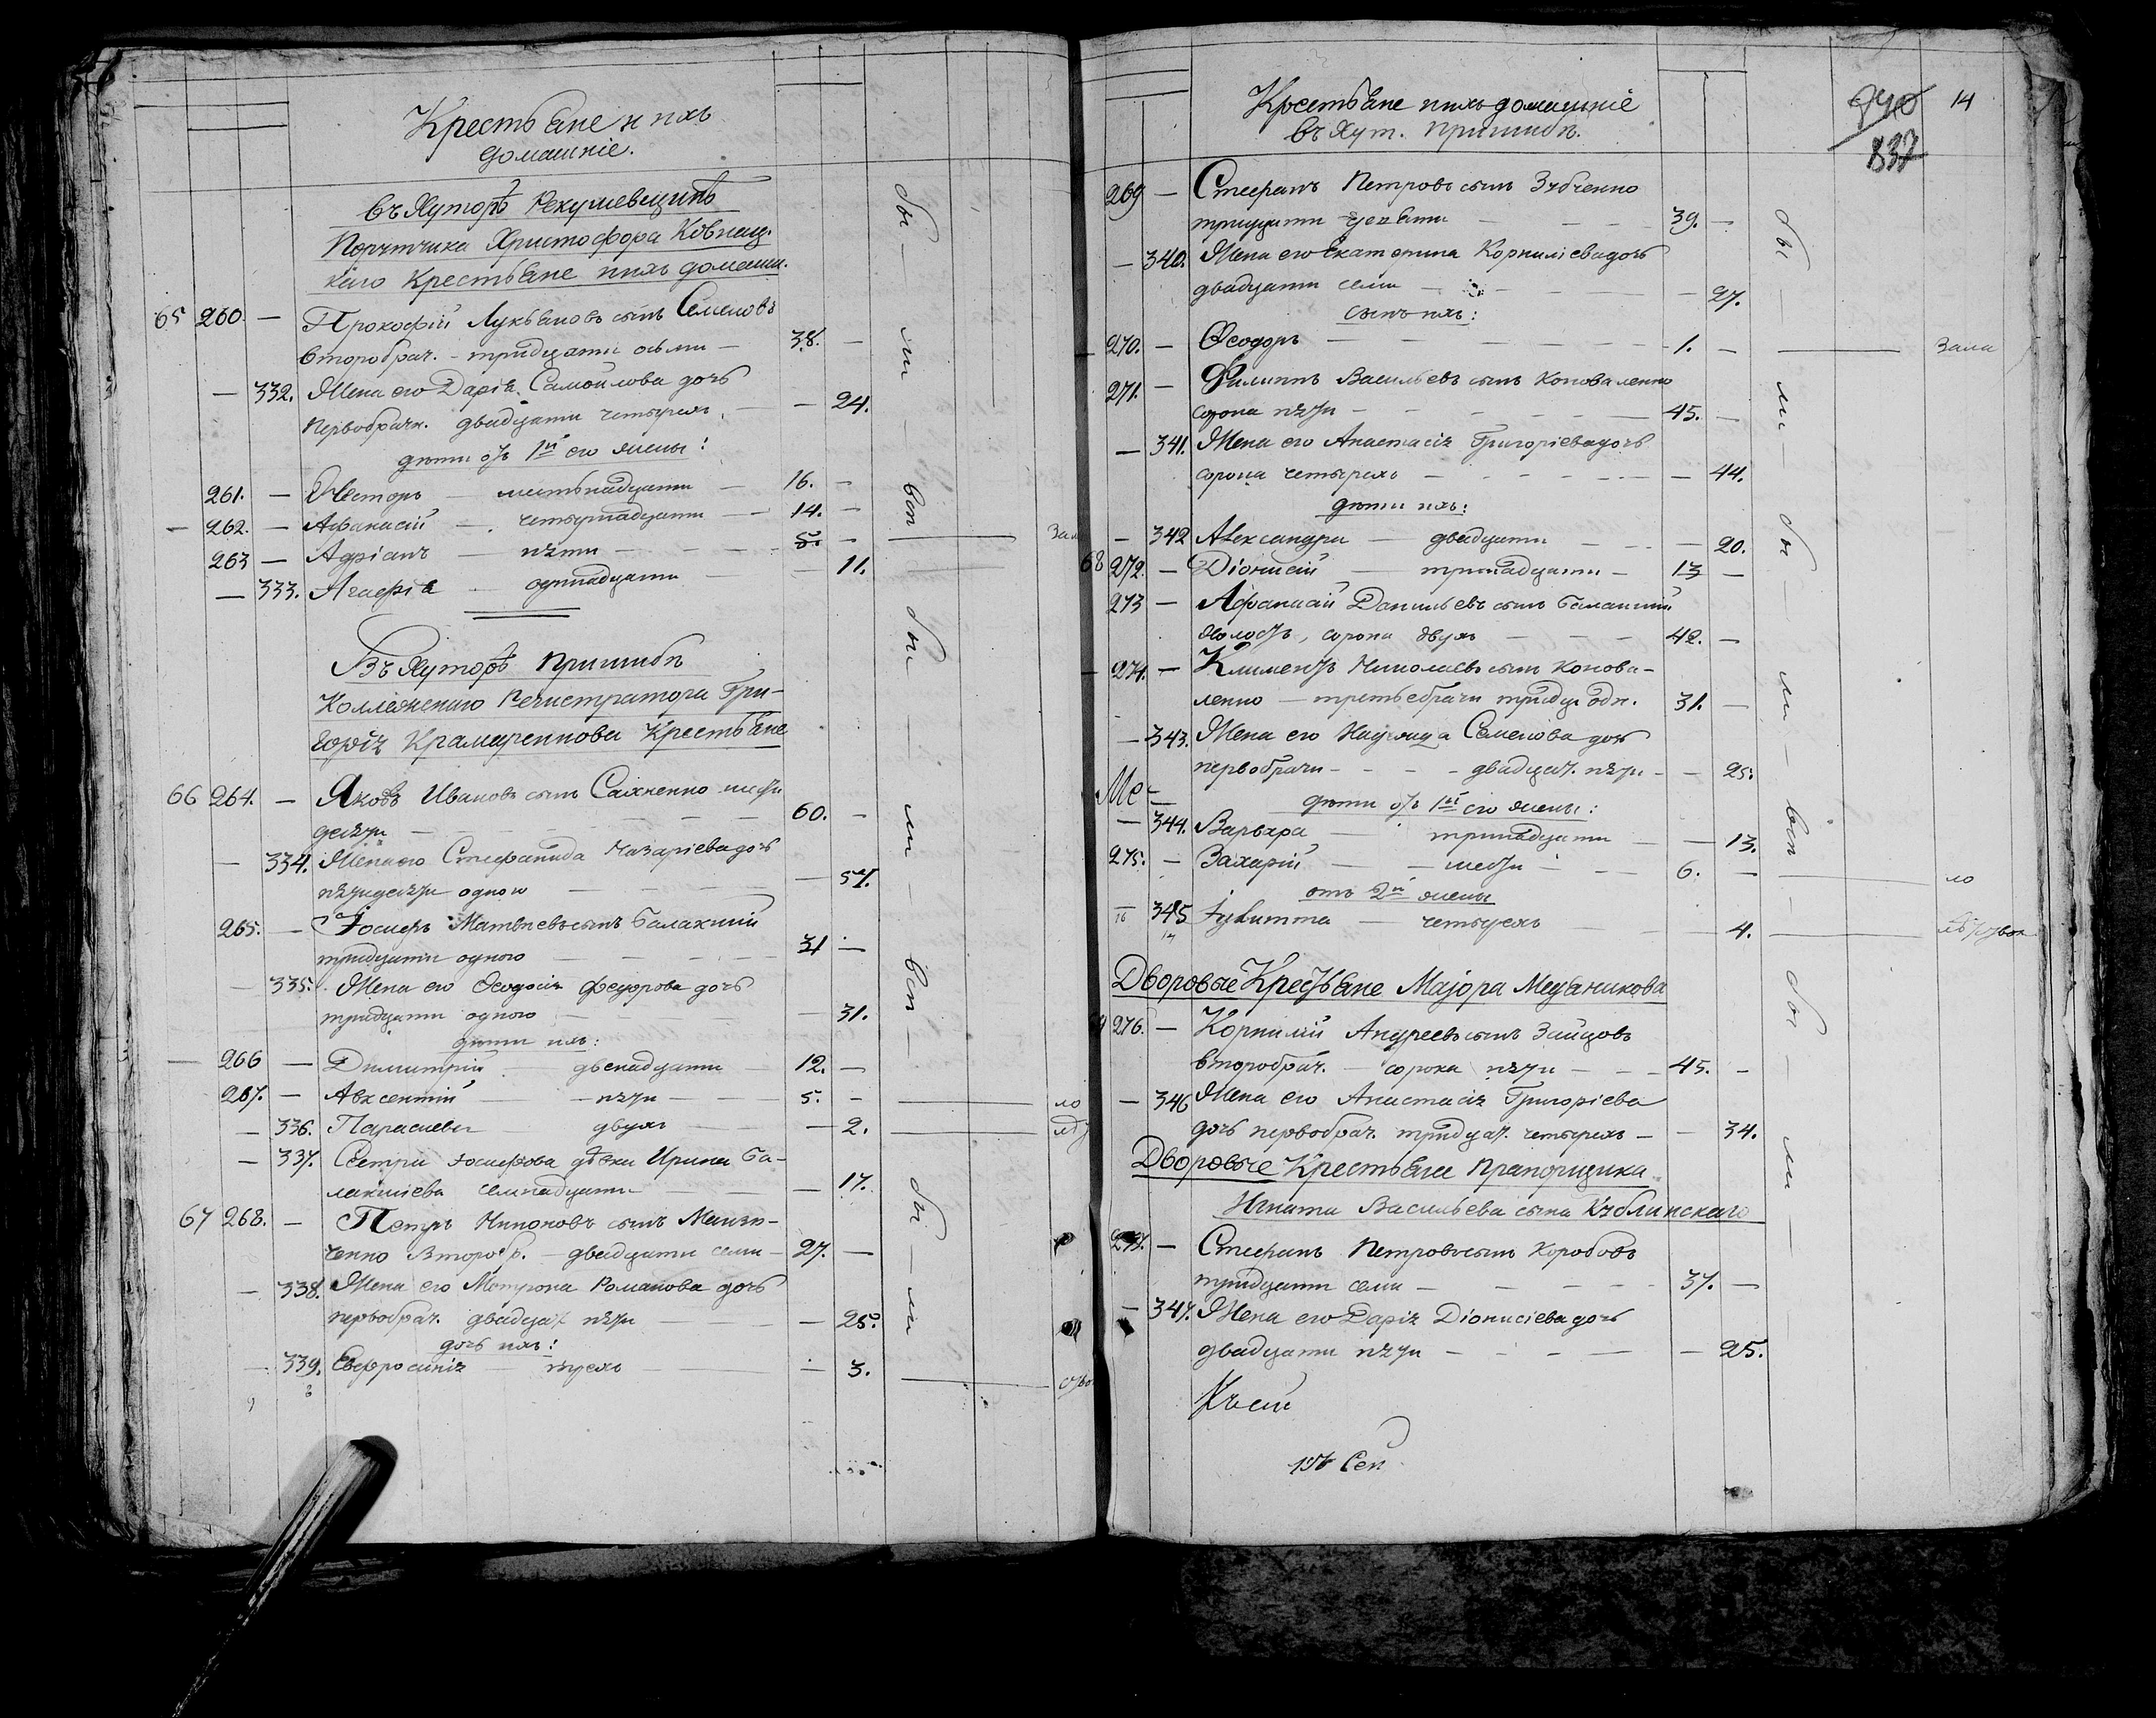 Крестьяне и ихъ
домашніе.
въ Хуторѣ
Порутчика Христофора Ковнац-
каго Крестьяне ихъ домашн.
65 260. — Прокофій Лукьяновъ сынъ Семеновъ
второбрач. – тридцати осьми — 38. —
— 332. Жена его Дарія Самойлова дочь
первобрачн. двадцати четырехъ — — 24.
дѣти отъ 1й его жены:
261. — Несторъ — шестьнадцати — 16. —
— 262. — Афанасій — четырнадцати — 14. —
263 — Адріанъ — пяти — 5. —
— 333. Агафія — одинадцати — — 11.
Въ Хуторѣ Пришибѣ
Коллежскаго Регистратора Гри-
горія Крамаренкова Крестьяне
66 264. — Яковъ Ивановъ сынъ Сахненко шести
десяти — 60. —
— 334. Жена его Стефанида Назаріева дочь
пятидесяти одного — — 51.
265. — Іосифъ Матвѣевъ сынъ Балакшій
тридцати одного — 31 —
— 335. Жена его Феодосія Федорова дочь
тридцати одного — — 31.
дѣти ихъ:
266 — Димитрій — двенадцати — 12. —
267. — Авксентій — пяти — 5. — ло
— 336. Параскева — двухъ — — 2.
— 337. Сестра Іосифова дѣвка Ирина Ба-
лакшіева семнадцати — — 17.
67 268. — Петръ Никоновъ сынъ
ченко Второбр. — двадцати семи — 27. —
— 338. Жена его Матрона Романова дочь
первобрач. двадцат. пяти — — 25.
дочь ихъ:
— 339. Евфросинія — трехъ — — 3.
бы — ли — вси — бы — ли — вси — бы — ли
Крестьяне ихъ домашніе
въ Хут. Пришибѣ.
940
837
14
269 — Стефанъ Петровъ сынъ Зубченко
тридцати девяти — 39. —
— 340. Жена его Екатерина Корниліева дочь
двадцати семи — — 27.
сынъ ихъ:
270. — Феодоръ — 1. — Зала
271. — Филиппъ Васильевъ сынъ Коноваленко
сорока пяти — 45. —
— 341. Жена его Анастасія Григоріева дочь
сорока четырехъ — — 44.
дѣти ихъ:
— 342 Александра — двадцати — — 20.
68 272. — Діонисій — тринадцати — 13 —
273 — Афанасій Данильевъ сынъ Балакшій
холостъ, сорока двухъ — 42. —
— 274. — Климентъ Николаевъ сынъ Конова-
ленко — третьебрачн тридц. одн. 31. —
— 343. Жена его Надежда Семенова дочь
первобрачн — двадцат. пяти — — 25.
Ме-
дѣти отъ 1й его жены:
— 344. Варвара — тринадцати — — 13.
275. — Захарій — шести — 6. — ло
отъ 2й жены
345 Іулитта — четырехъ — 4.
Дворовые Крестьяне Маіора Медяникова
276. — Корнилій Андреевъ сынъ Зайцовъ
второбрач. — сорока пяти — 45. —
— 346 Жена его Анастасія Григоріева
дочь первобрач. тридцат. четырехъ — — 34.
Дворовые Крестьяне Прапорщика
Игната Васильева сына Кублинскаго
277. — Стефанъ Петровъ сынъ Коробовъ
тридцати семи — 37. —
— 347. Жена его Дарія Діонисіева дочь
двадцати пяти — — 25.
бы — ли — бы — ли — вси — бы — ли